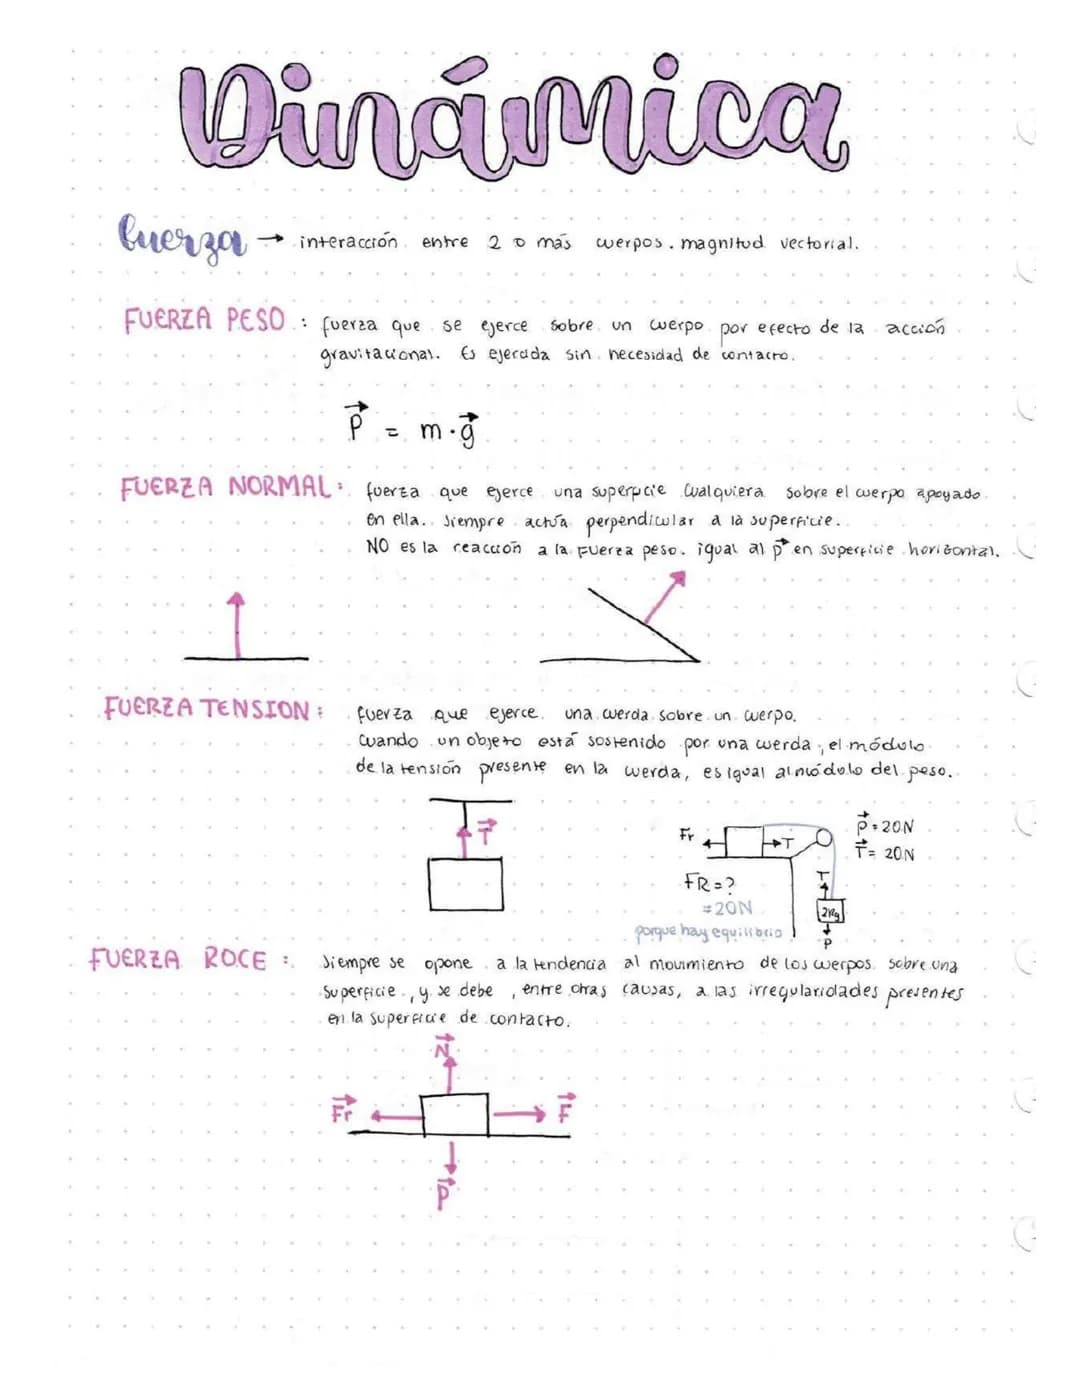 Dinámica
fuerza → interacción entre 2 o más cuerpos. magnitud vectorial.
FUERZA PESO: fuerza que se ejerce sobre un cuerpo por efecto de la acción
gravitacional. Es ejercida sin necesidad de contacto.
P = m·g
FUERZA NORMAL: fuerza que ejerce una superficie cualquiera sobre el cuerpo apoyado
en ella. Siempre actúa perpendicular a la superficie.
NO es la reacción a la fuerza peso. igual al p en superficie horizontal.
FUERZA TENSION: fuerza que ejerce una cuerda sobre un cuerpo.
Cuando un objeto está sostenido por una cuerda, el módulo
de la tensión presente en la cuerda, es igual al módulo del peso.
T
Fr T
P = 20N
T = 20N
FR = ?
= 20N
porque hay equilibrio
T
2Kg
P
FUERZA ROCE: Siempre se opone a la tendencia al movimiento de los cuerpos sobre una
superficie, y se debe, entre otras causas, a las irregularidades presentes
en la superficie de contacto.
N
Fr F
P